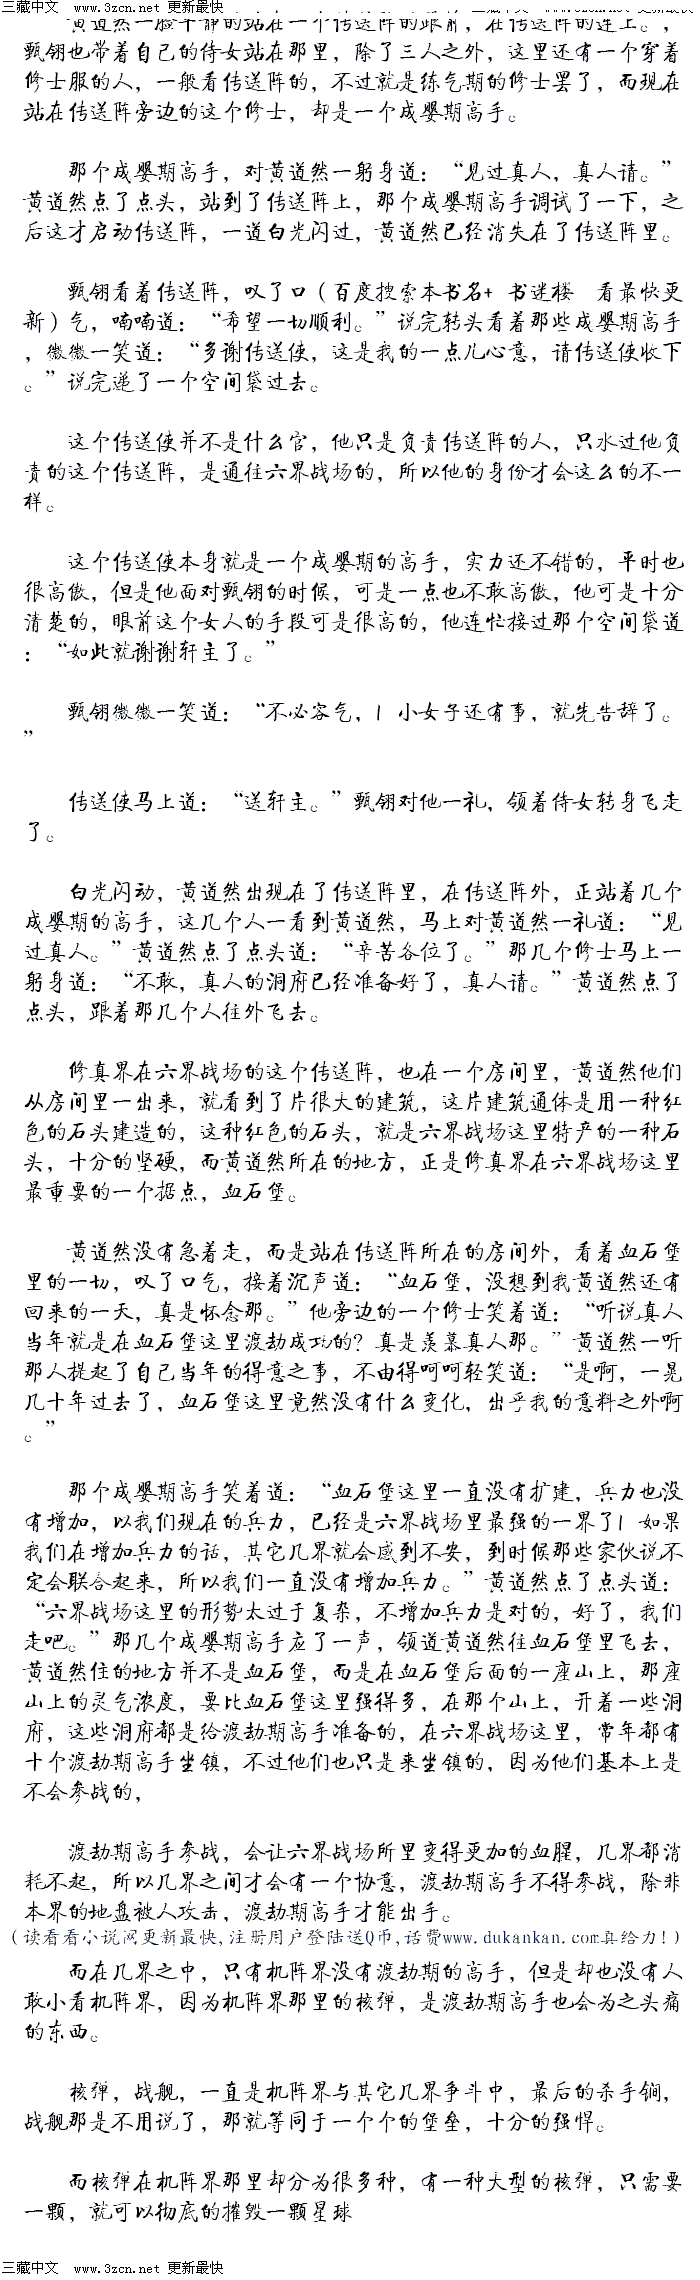 三藏中文 www.3zcn.net 更新最快 三藏中文 www.3zcn.net 更新最快
黄道然一脸平静的站在一个传送阵的跟前，在传送阵的边上。，
甄翎也带着自己的侍女站在那里，除了三人之外，这里还有一个穿着
修士服的人，一般看传送阵的，不过就是练气期的修士罢了，而现在
站在传送阵旁边的这个修士，却是一个成婴期高手。
那个成婴期高手，对黄道然一躬身道：“见过真人，真人请。”
黄道然点了点头，站到了传送阵上，那个成婴期高手调试了一下，之
后这才启动传送阵，一道白光闪过，黄道然已经消失在了传送阵里。
甄翎看着传送阵，叹了口（百度搜索本书名+ 书迷楼 看最快更
新）气，喃喃道：“希望一切顺利。”说完转头看着那些成婴期高手
，微微一笑道：“多谢传送使，这是我的一点儿心意，请传送使收下
。”说完递了一个空间袋过去。
这个传送使并不是什么官，他只是负责传送阵的人，只水过他负
责的这个传送阵，是通往六界战场的，所以他的身份才会这么的不一
样。
这个传送使本身就是一个成婴期的高手，实力还不错的，平时也
很高傲，但是他面对甄翎的时候，可是一点也不敢高傲，他可是十分
清楚的，眼前这个女人的手段可是很高的，他连忙接过那个空间袋道
：“如此就谢谢轩主了。”
甄翎微微一笑道：“不必客气，| 小女子还有事，就先告辞了。
”
传送使马上道：“送轩主。”甄翎对他一礼，领着侍女转身飞走
了。
白光闪动，黄道然出现在了传送阵里，在传送阵外，正站着几个
成婴期的高手，这几个人一看到黄道然，马上对黄道然一礼道：“见
过真人。”黄道然点了点头道：“辛苦各位了。”那几个修士马上一
躬身道：“不敢，真人的洞府已经准备好了，真人请。”黄道然点了
点头，跟着那几个人往外飞去。
修真界在六界战场的这个传送阵，也在一个房间里，黄道然他们
从房间里一出来，就看到了片很大的建筑，这片建筑通体是用一种红
色的石头建造的，这种红色的石头，就是六界战场这里特产的一种石
头，十分的坚硬，而黄道然所在的地方，正是修真界在六界战场这里
最重要的一个据点，血石堡。
黄道然没有急着走，而是站在传送阵所在的房间外，看着血石堡
里的一切，叹了口气，接着沉声道：“血石堡，没想到我黄道然还有
回来的一天，真是怀念那。”他旁边的一个修士笑着道：“听说真人
当年就是在血石堡这里渡劫成功的？真是羡慕真人那。”黄道然一听
那人提起了自己当年的得意之事，不由得呵呵轻笑道：“是啊，一晃
几十年过去了，血石堡这里竟然没有什么变化，出乎我的意料之外啊
。”
那个成婴期高手笑着道：“血石堡这里一直没有扩建，兵力也没
有增加，以我们现在的兵力，已经是六界战场里最强的一界了| 如果
我们在增加兵力的话，其它几界就会感到不安，到时候那些家伙说不
定会联合起来，所以我们一直没有增加兵力。”黄道然点了点头道：
“六界战场这里的形势太过于复杂，不增加兵力是对的，好了，我们
走吧。”那几个成婴期高手应了一声，领道黄道然往血石堡里飞去，
黄道然住的地方并不是血石堡，而是在血石堡后面的一座山上，那座
山上的灵气浓度，要比血石堡这里强得多，在那个山上，开着一些洞
府，这些洞府都是给渡劫期高手准备的，在六界战场这里，常年都有
十个渡劫期高手坐镇，不过他们也只是来坐镇的，因为他们基本上是
不会参战的，
渡劫期高手参战，会让六界战场所里变得更加的血腥，几界都消
耗不起，所以几界之间才会有一个协意，渡劫期高手不得参战，除非
本界的地盘被人攻击，渡劫期高手才能出手。
（读看看小说网更新最快，注册用户登陆送Q币，话费www.dukankan.com真给力！）
而在几界之中，只有机阵界没有渡劫期的高手，但是却也没有人
敢小看机阵界，因为机阵界那里的核弹，是渡劫期高手也会为之头痛
的东西。
核弹，战舰，一直是机阵界与其它几界争斗中，最后的杀手锏，
战舰那是不用说了，那就等同于一个个的堡垒，十分的强悍。
而核弹在机阵界那里却分为很多种，有一种大型的核弹，只需要
一颗，就可以彻底的摧毁一颗星球
三藏中文 www.3zcn.net 更新最快